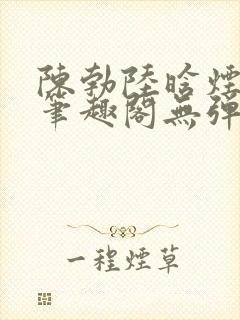 陳勃陸晗煙
筆趣閣無彈
一程煙草